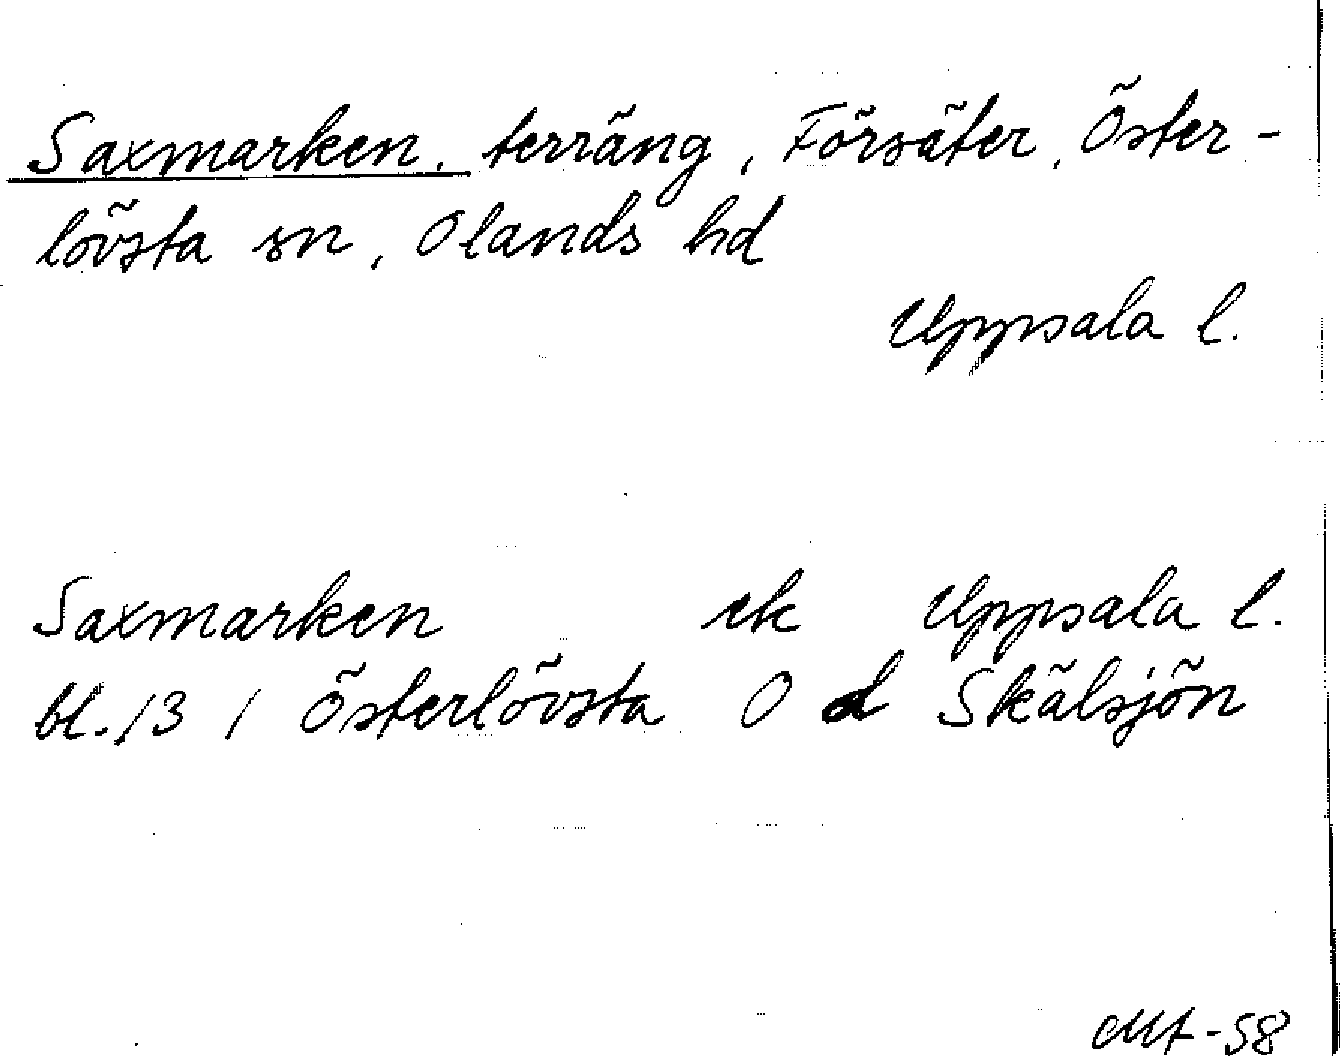 Saxmarken, terräng, Försäter, Öster-
lövsta sn, Olands hd
Uppsala l.
Saxmarken ek Uppsala l.
bl. 13, Österlövsta O d Skälsjön
MA-58